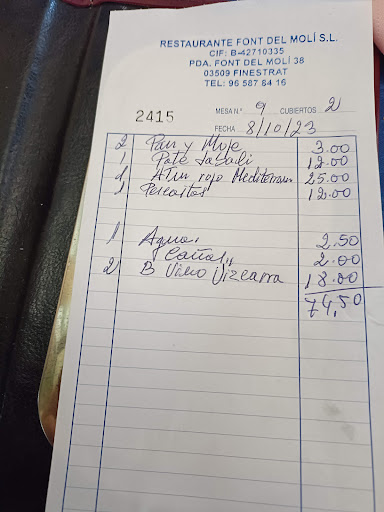 RESTAURANTE FONT DEL MOLÍ S.L.
CIF: B-42710335
PDA. FONT DEL MOLÍ 38
03509 FINESTRAT
TEL: 96 587 64 16
2415 MESA N.º 9 CUBIERTOS 2
FECHA 8/10/23
2 Pan y Moje 3.00
1 Paté Jabali 12.00
1 Atun rojo Mediterran 25.00
1 12.00
1 Agua 2.50
Caña 2.00
2 B Vino Vizcarra 18.00
74,50